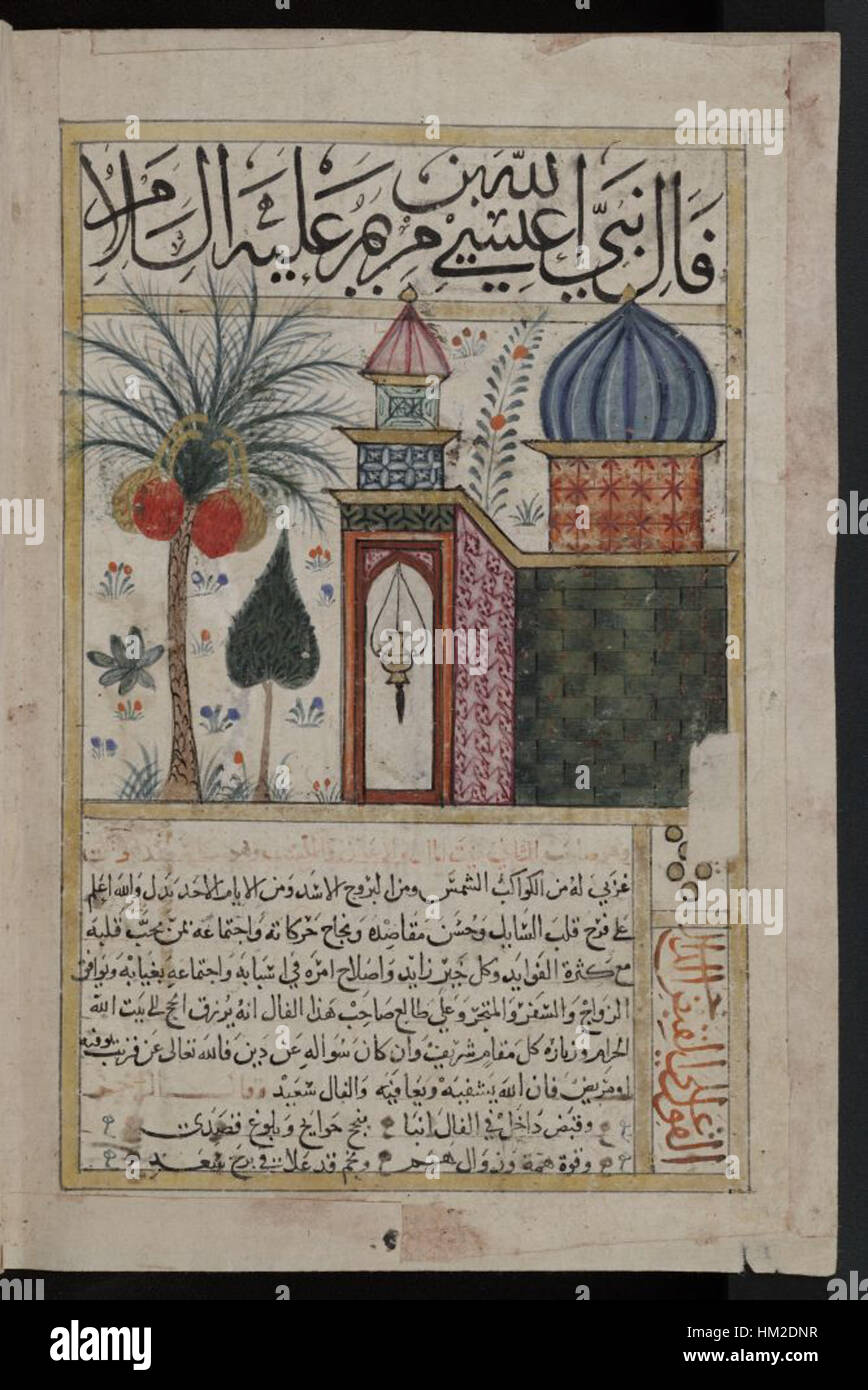 فال نبي الله عيسى بن مريم عليه السلام
غربي له من الكواكب الشمس ومن البروج الاسد ومن الايام الاحد يدل والله اعلم
على فرح قلب السايل وحسن مقاصده ونجاح حركاته واجتماعه بمن يحب قلبه
مع كثرة الفوايد وكل خير زايد واصلاح امره في اسبابه واجتماعه بغيابه ويوافق
الزواج والسفر والمتجر وعلى طالع صاحب هذا الفال انه يرزق الحج الى بيت الله
الحرام وزيارة كل مقام شريف وان كان سواله عن دين فالله تعالى عن قريب يوفيه
او مريض فان الله يشفيه ويعافيه والفال سعيد
وقبض داخل في الفال انبا بنجح حوايج وبلوغ قصد
وقوة همة وزوال هم ونجم قد علا في برج سعد
alamy stock photo
HM2DNR
www.alamy.com